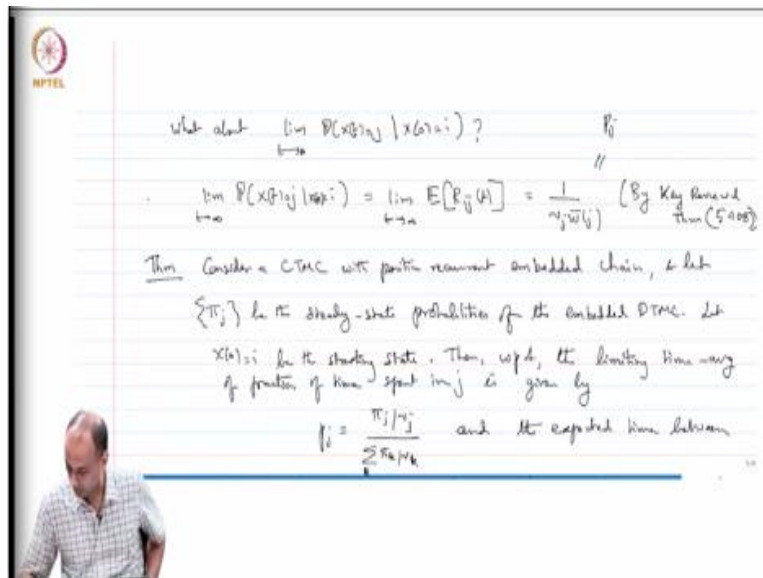 NPTEL
What about lim t→∞ P(X(t)=j | X(0)=i) ? P_j
//
lim t→∞ P(X(t)=j | X(0)=i) = lim t→∞ E[R_ij(t)] = 1 / ν_j W̄(j) (By Key Renewal
Thm (5.108)
Thm Consider a CTMC with positive recurrent embedded chain, & let
{π_j} be the steady-state probabilities of the embedded DTMC. Let
X(0)=i be the starting state. Then, wp1, the limiting time-avg
of fraction of time spent in j is given by
p_j = π_j/ν_j / Σ_k π_k/ν_k and the expected time between